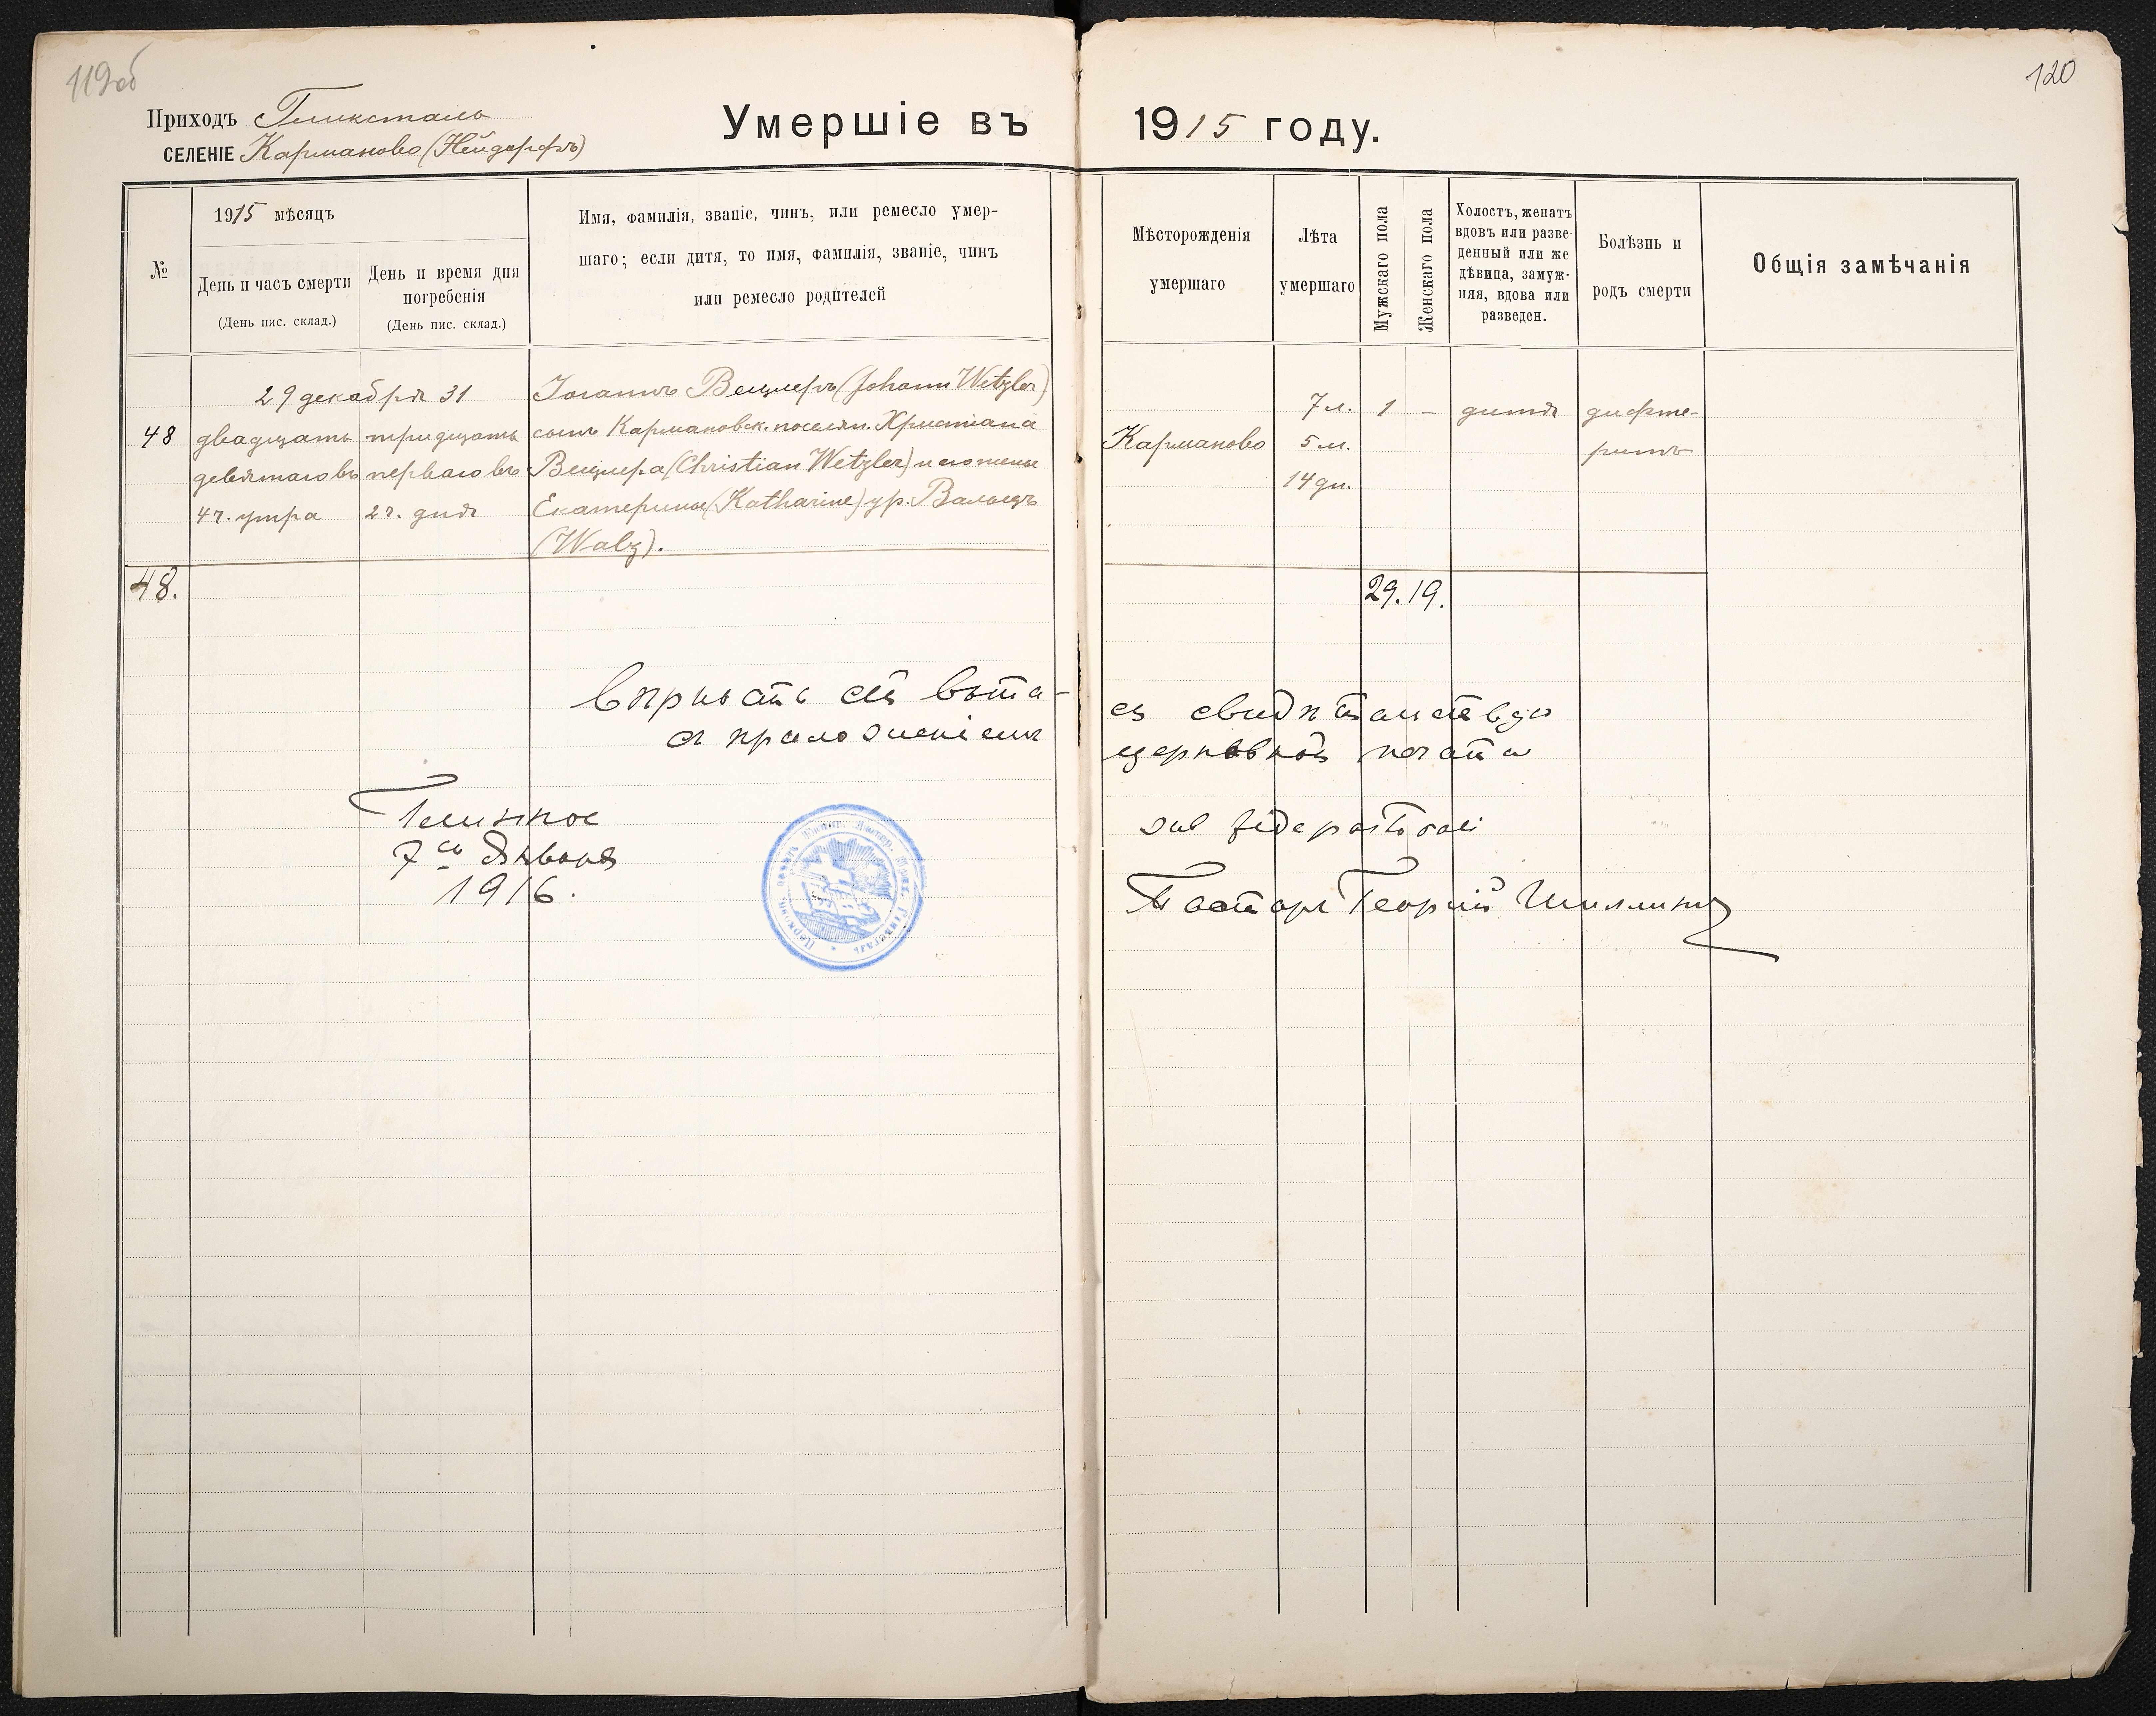 119об
120
Приходъ Глюксталь
СЕЛЕНІЕ Карманово (Нейдорфъ)
Умершіе въ 1915 году.
№
1915 мѣсяцъ
День и часъ смерти
(День пис. склад.)
День и время дня
погребенія
(День пис. склад.)
Имя, фамилія, званіе, чинъ, или ремесло умер-
шаго; если дитя, то имя, фамилія, званіе, чинъ
или ремесло родителей
Мѣсторожденія
умершаго
Лѣта
умершаго
Мужскаго пола
Женскаго пола
Холостъ, женатъ
вдовъ или разве-
денный или же
дѣвица, замуж-
няя, вдова или
разведен.
Болѣзнь и
родъ смерти
Общія замѣчанія
48
29 декабря 31
двадцать
девятаго въ
4 ч. утра
тридцать
перваго въ
2 ч. дня
Іоганнъ Вецлеръ (Johann Wetzler)
сынъ Кармановск. поселян. Христіана
Вецлера (Christian Wetzler) и его жены
Екатерины (Katharine) ур. Вальцъ
(Walz).
Карманово
7 л.
5 м.
14 дн.
1
–
дитя
дифте-
ритъ
48.
29. 19.
свидѣтельствую
съ приложеніемъ церковной печати
7го Января
1916.
sub fide pastorali
Пасторъ Георгій Шиллингъ